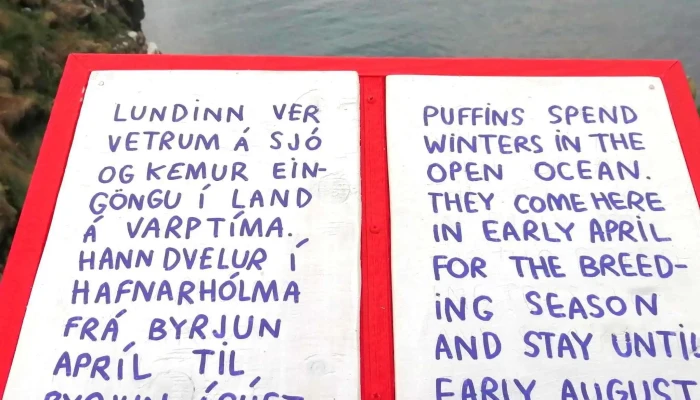 LUNDINN VER
VETRUM Á SJÓ
OG KEMUR EIN-
GÖNGU Í LAND
Á VARPTÍMA.
HANN DVELUR Í
HAFNARHÓLMA
FRÁ BYRJUN
APRÍL TIL
BYRJUN ÁGÚST
PUFFINS SPEND
WINTERS IN THE
OPEN OCEAN.
THEY COME HERE
IN EARLY APRIL
FOR THE BREED-
ING SEASON
AND STAY UNTIL
EARLY AUGUST